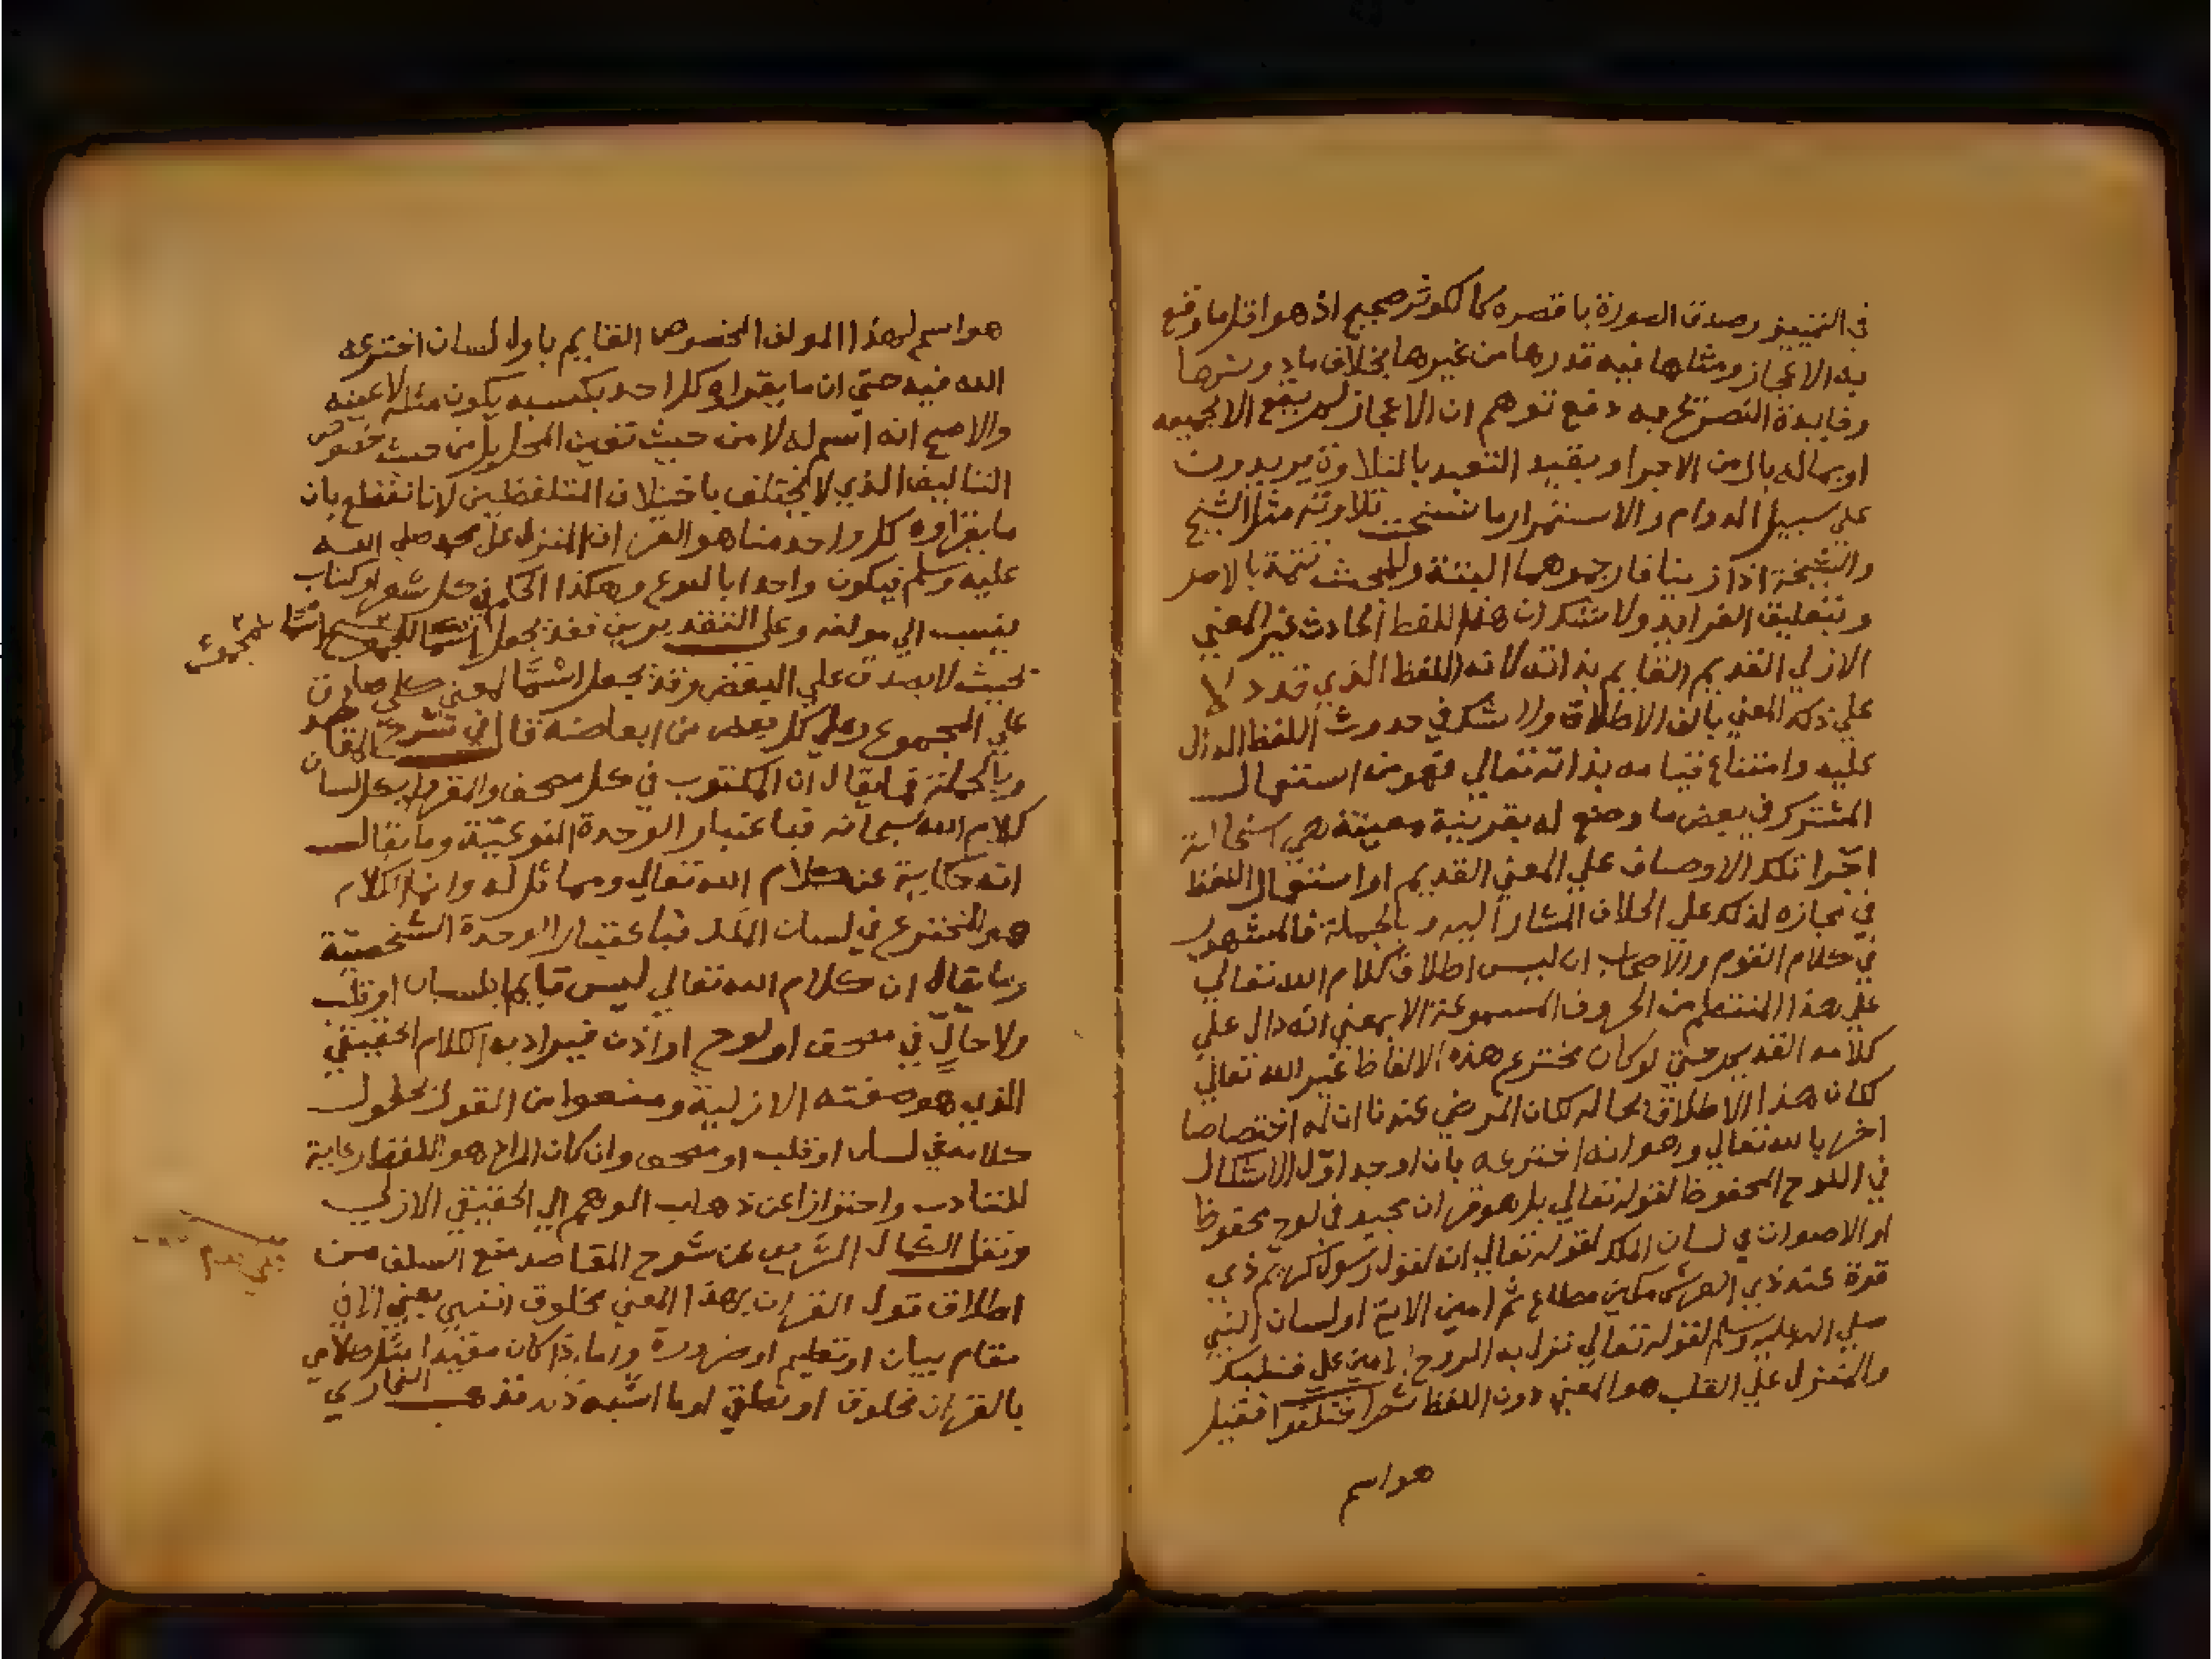 في التمييز وصدق السورة باقصره كالكوثر صحيح اذ هو اقل ما وقع
به الاعجاز ومثلها فيه قدرها من غيرها بخلاف ما دونها
وفايدة التصريح به دفع توهم ان الاعجاز لم يقع الا بجميعه
او بماله بال من الاجزاء وبقيد التعبد بالتلاوة يريدون
علي سبيل الدوام والاستمرار ما نسخت تلاوته مثل الشيخ
والشيخة اذا زنيا فارجموهما البتة وللبحث تتمة بالاصل
وبتعليق الفرايد ولا شك ان هذا اللفظ الحادث غير المعني
الازلي القديم القايم بذاته لانه اللفظ الذي قد دلا
علي ذلك المعني بالف الاطلاق ولا شك في حدوث اللفظ الدال
عليه وامتناع قيامه بذاته تعالي فهو من استعمال
المشترك في بعض ما وضع له بقرينة معينة هي استحالة
اجرا تلك الاوصاف علي المعني القديم او استعمال اللفظ
في مجازه لذلك علي الخلاف المشار اليه وبالجملة فالمشهور
في كلام القوم والاصحاب ان ليس اطلاق كلام الله تعالي
علي هذا المنتظم من الحروف المسموعة الا بمعني انه دال علي
كلامه القديم حتي لو كان مخترع هذه الالفاظ غير الله تعالي
لكان هذا الاطلاق بحاله لكان المرضي عندنا ان له اختصاصا
اخر بالله تعالي وهو انه اخترعه بان اوجد اوّل الاشكال
في اللوح المحفوظ لقوله تعالي بل هو قران مجيد في لوح محفوظ
او الاصوات في لسان الملك لقوله تعالي انه لقول رسول كريم ذي
قوة عند ذي العرش مكين مطاع ثم امين الاية او لسان النبي
صلي الله عليه وسلم لقوله تعالي نزل به الروح الامين علي قلبك
والمنزل علي القلب هو المعني دون اللفظ ثم اختلفوا فقيل
هو اسم
هو اسم لهذا المولف المخصوص القايم باول لسان اخترعه
الله فيه حتي ان ما يقراوه كل احد بكسبه يكون مثله لا عينه
والاصح انه اسم له لا من حيث تعين المحل بل من حيث خصوص
التاليف الذي لا يختلف باختلاف المتلفظين لانا نقطع بان
ما يقراوه كل واحد منا هو القران المنزل علي محمد صلي الله
عليه وسلم فيكون واحدا بالنوع وهكذا الحكم في كل شعر او كتاب
ينسب الي مولفه وعلي التقديرين فقد يجعل اسما للمجموع
بحيث لا يصدق علي البعض وقد يجعل اسما لمعني كلي صادق
علي المجموع وعلي كل بعض من ابعاضه قال في شرح المقاصد
وبالجملة فما يقال ان المكتوب في كل مصحف والمقرو بكل لسان
كلام الله سبحانه فباعتبار الوحدة النوعيّة وما يقال
انه حكاية عن كلام الله تعالي ومماثل له وانما الكلام
هو المخترع في لسان الملك فباعتبار الوحدة الشخصيّة
وما يقال ان كلام الله تعالي ليس قايما بلسان او قلب
ولا حالّ في مصحف او لوح او اذن فيراد به الكلام الحقيقي
الذي هو صفته الازلية ومنعوا من القول بحلول
كلامه في لسان او قلب او مصحف وان كان المراد هو اللفظ رعاية
للتادب واحترازا عن ذهاب الوهم الي الحقيقي الازلي
ونقل الكمال الشريف عن شرح المقاصد منع السلف من
اطلاق قول القران بهذا المعني مخلوق انتهي يعني الا في
مقام بيان او تعليم او ضرورة واما اذا كان مقيدا مثل كلامي
بالقران مخلوق او نطقي او ما اشبه ذلك فذهب البخاري